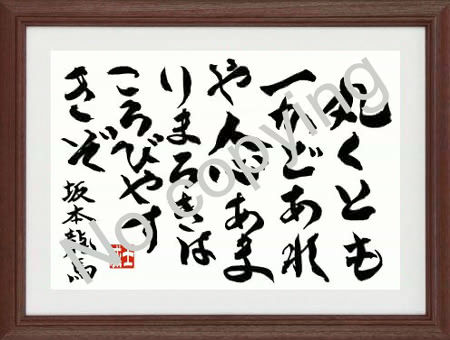 丸くとも
一かどあれ
や人心あま
りまろきは
ころびやす
きぞ
坂本龍馬
No copying